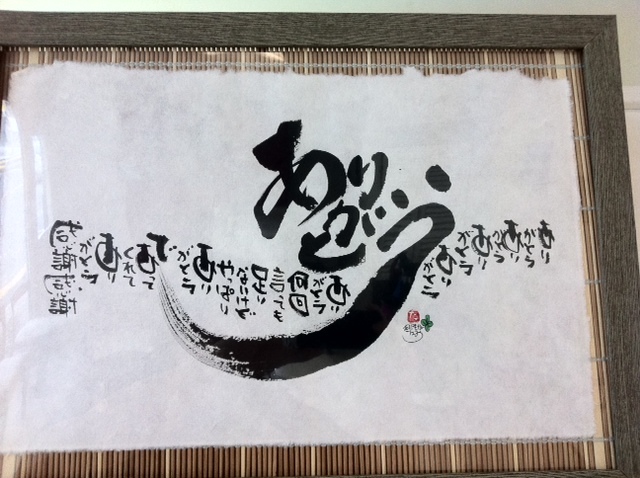 ありがとう
あり
がとう
あり
がとう
あり
がとう
あり
がとう
あり
がとう
何回
言っても
足り
ないけど
やっぱり
あり
がとう
で
あって
くれて
あり
がとう
感謝感謝